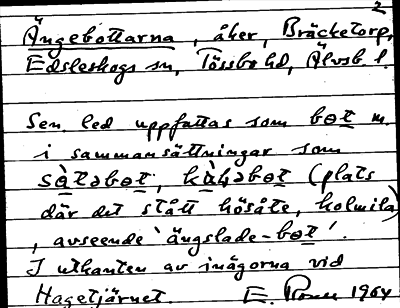 2
Ängebottarna, åker, Bräcketorp,
Edsleskogs sn, Tössbo hd, Älvsb. l.
Sen. led uppfattas som bɵt m.
i sammansättningar som
sàtəbɵt, kàɳəbɵt (plats
där det stått hösåte, kolmila)
, avseende 'ängslade-bɵt'.
I utkanten av inägorna vid
Hagetjärnet. E. 1964